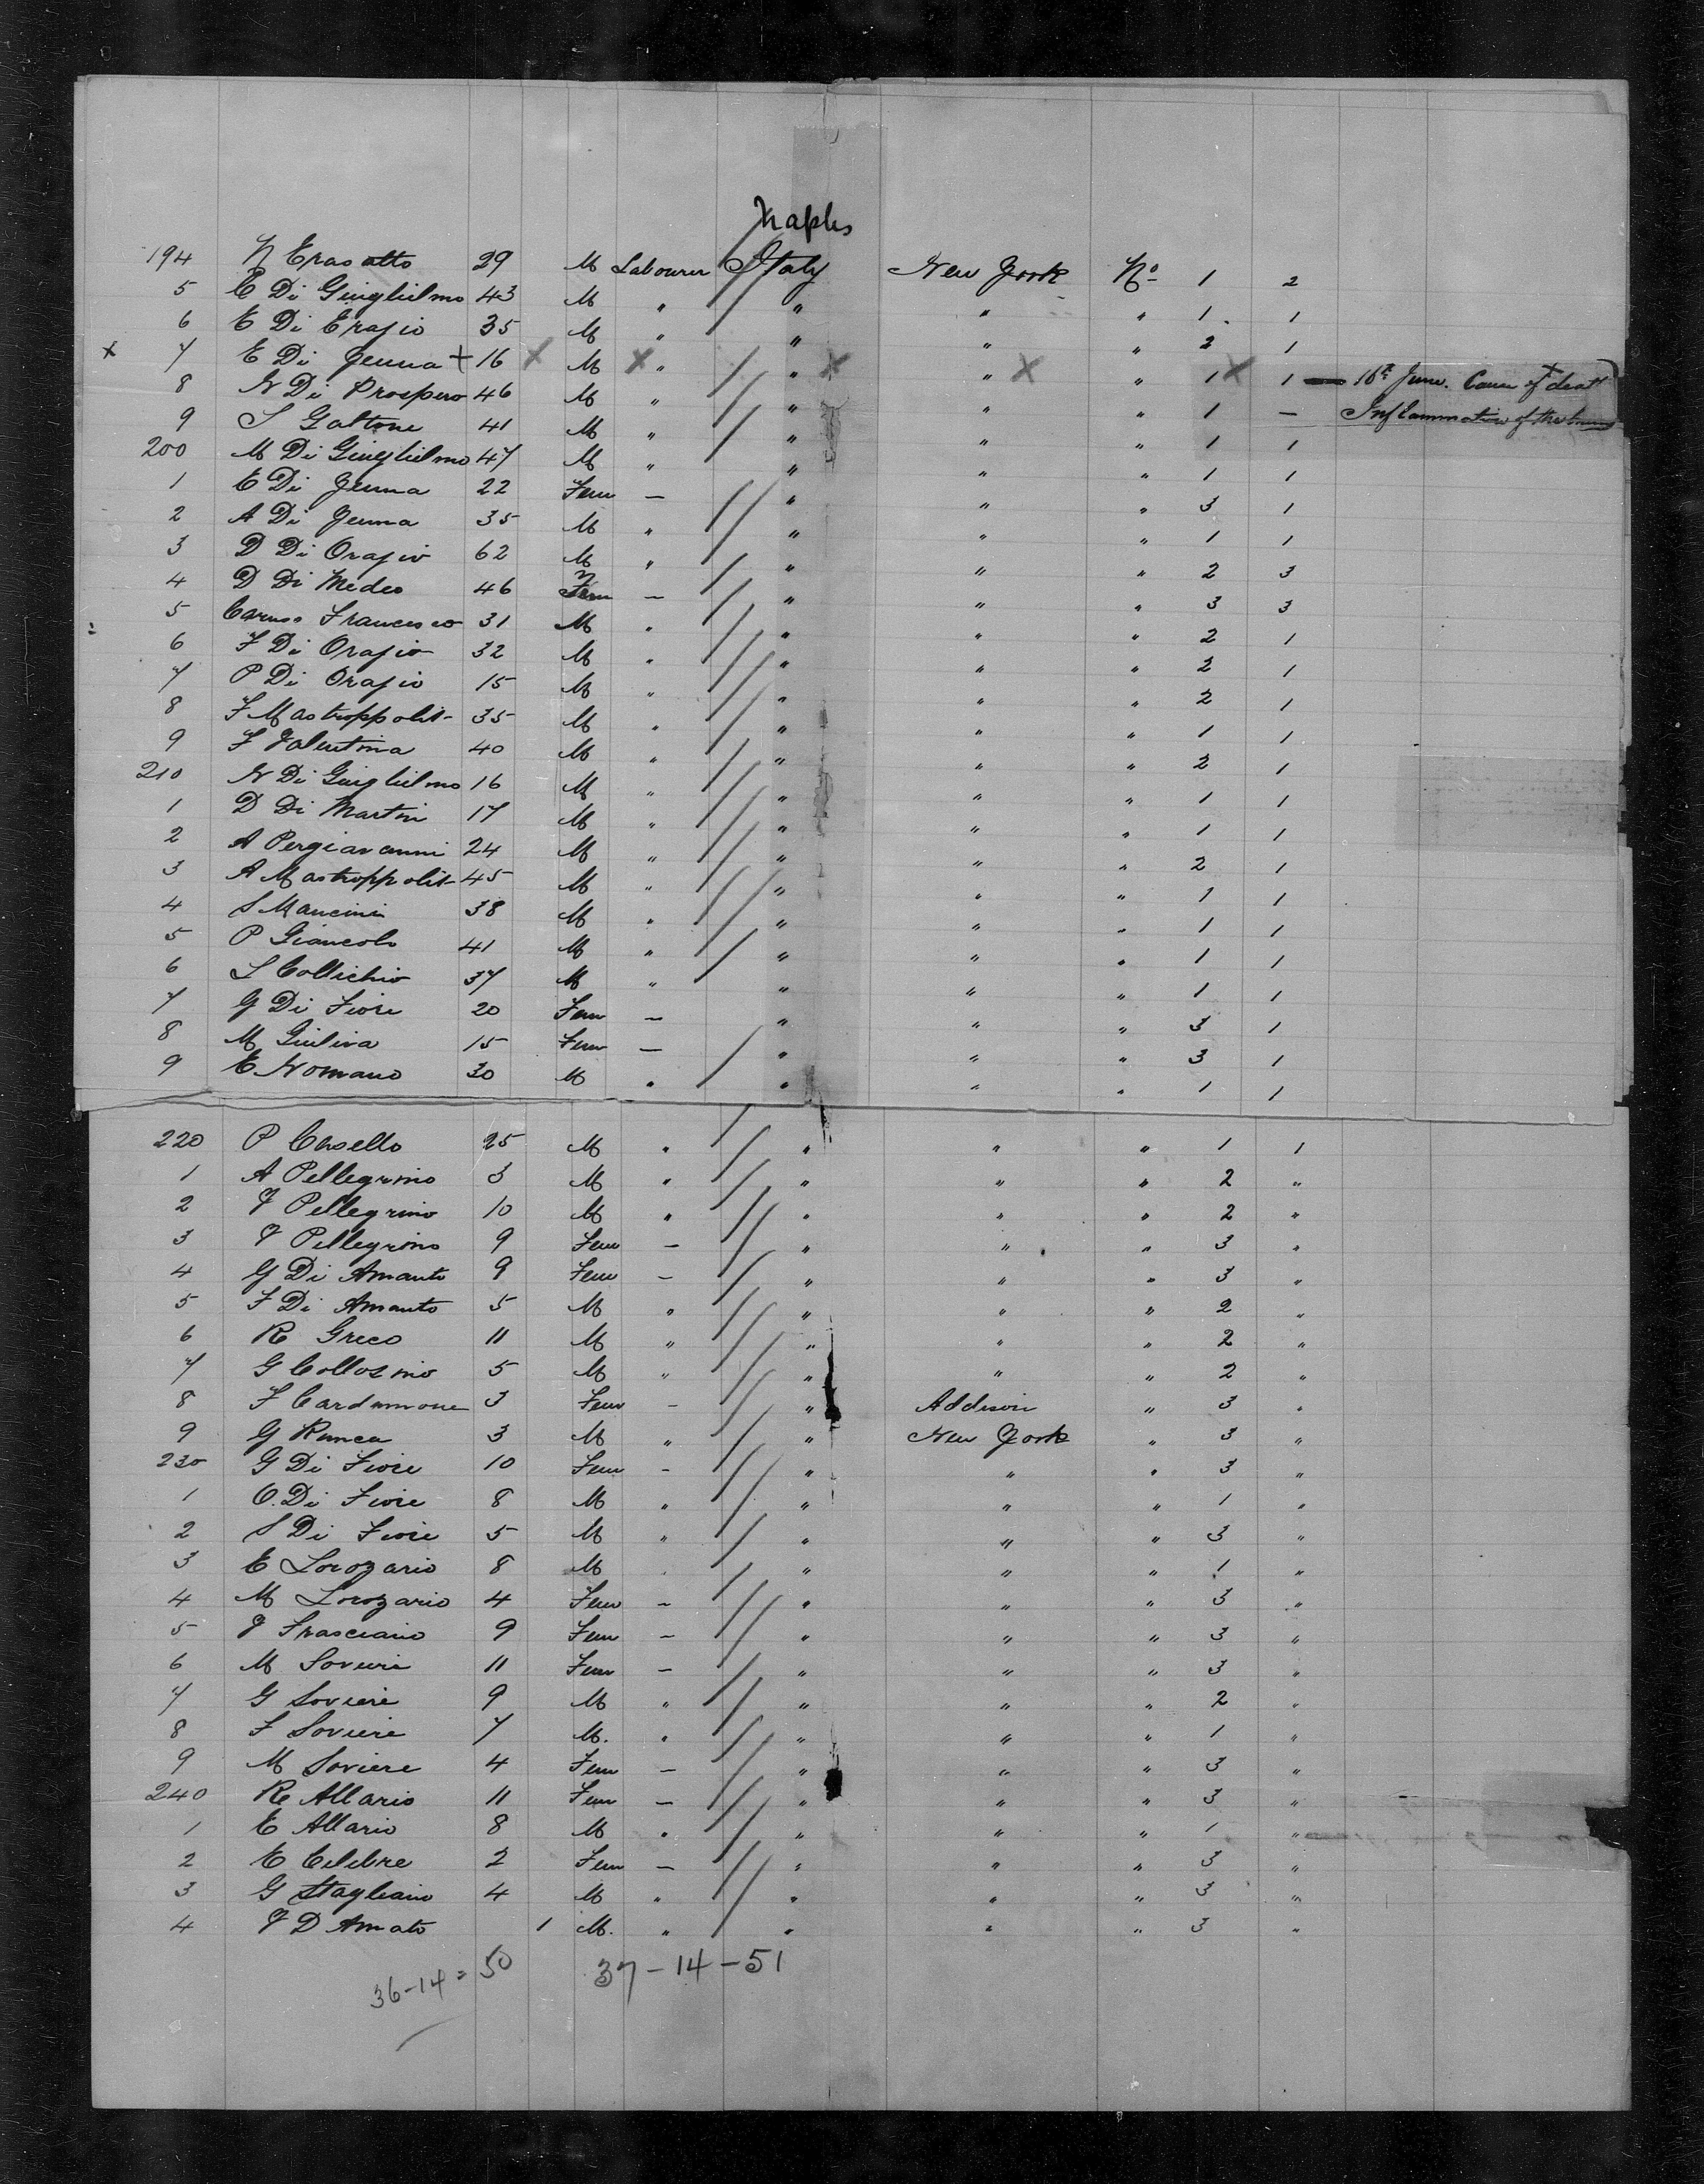 Naples
194 N Erasatto 29 M Labourer Italy New York No 1 2
5 E Di Guiglielmo 43 M " " " " 1 1
6 E Di Erasio 35 M " " " " 2 1
x 7 E Di Jenna + 16 x M x " " x " x " 1 x 1 — 16th June. Cause of death
8 N Di Prospero 46 M " " " " 1 — Inflammation of the
9 S Galtone 41 M " " " " 1 1
200 M Di Guiglielmo 47 M " " " " 1 1
1 E Di Jenna 22 Fem — " " " 3 1
2 A Di Jenna 35 M " " " " 1 1
3 D Di Orasio 62 M " " " " 2 3
4 D Di Medeo 46 Fem — " " " 3 3
5 Caruso Francesco 31 M " " " " 2 1
6 F Di Orasio 32 M " " " " 2 1
7 P Di Orasio 15 M " " " " 2 1
8 F Mastroppolit- 35 M " " " " 1 1
9 F Valentina 40 M " " " " 2 1
210 N Di Guiglielmo 16 M " " " " 1 1
1 D Di Martin 17 M " " " " 1 1
2 A Pergiavanni 24 M " " " " 2 1
3 A Mastroppolit- 45 M " " " " 1 1
4 S Mancini 38 M " " " " 1 1
5 P Giancolo 41 M " " " " 1 1
6 L Collichio 37 M " " " " 1 1
7 G Di Fiore 20 Fem — " " " 3 1
8 M Giuliva 15 Fem — " " " 3 1
9 E Nomano 30 M " " " " 1 1
220 P Casello 25 M " " " " 1 1
1 A Pellegrino 3 M " " " " 2 "
2 F Pellegrino 10 M " " " " 2 "
3 F Pellegrino 9 Fem — " " " 3 "
4 G Di Amanto 9 Fem — " " " 3 "
5 F Di Amanto 5 M " " " " 2 "
6 R Greco 11 M " " " " 2 "
7 G Collosmio 5 M " " " " 2 "
8 F Cardamone 3 Fem — " Addison " 3 "
9 G Runca 3 M " " New York " 3 "
230 G Di Fiore 10 Fem — " " " 3 "
1 O. Di Fiore 8 M " " " " 1 "
2 S Di Fiore 5 M " " " " 3 "
3 E Lorozario 8 M " " " " 1 "
4 M Lorozario 4 Fem — " " " 3 "
5 F Frasciano 9 Fem — " " " 3 "
6 M Soviere 11 Fem — " " " 3 "
7 G Soviere 9 M " " " " 2 "
8 F Soviere 7 M. " " " " 1 "
9 M Soviere 4 Fem — " " " 3 "
240 R Allario 11 Fem — " " " 3 "
1 E Allario 8 M " " " " 1 "
2 E Celebre 2 Fem — " " " 3 "
3 G Stagliano 4 M " " " " 3 "
4 F D Amato 1 M. " " " " 3 "
36-14=50 37-14-51